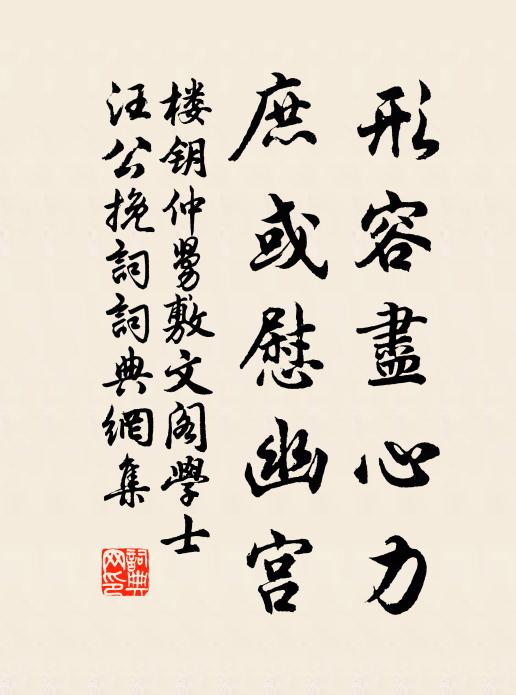 形容盡心力
庶或慰幽宫
楼钥仲舅敷文阁學士
汪公挽詞詞典網集
詞典网印